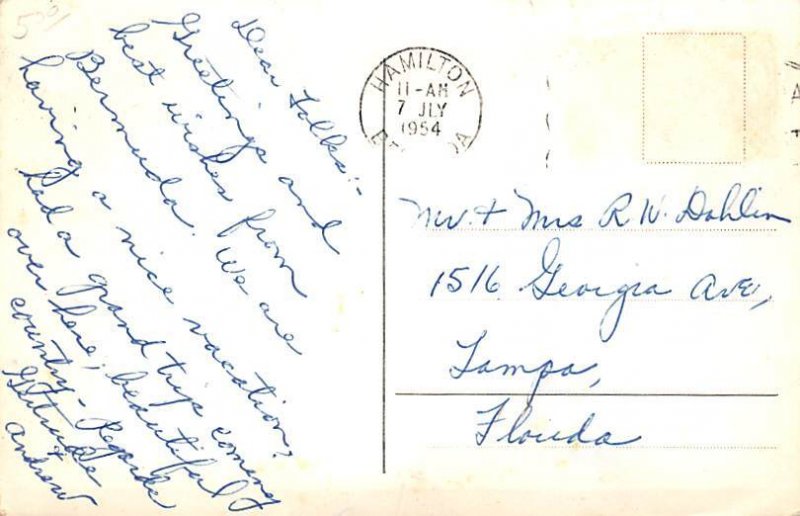 5 01
Dear Folks:-
Greetings and
best wishes from
Bermuda. We are
having a nice vacation;
had a grand trip coming
over here; beautiful
country - Regards
Gertrude
+
Andrew
HAMILTON
11-AM
7 JLY
1954
Mr. + Mrs R W. Dahlin
1516 Georgia Ave,
Tampa,
Florida